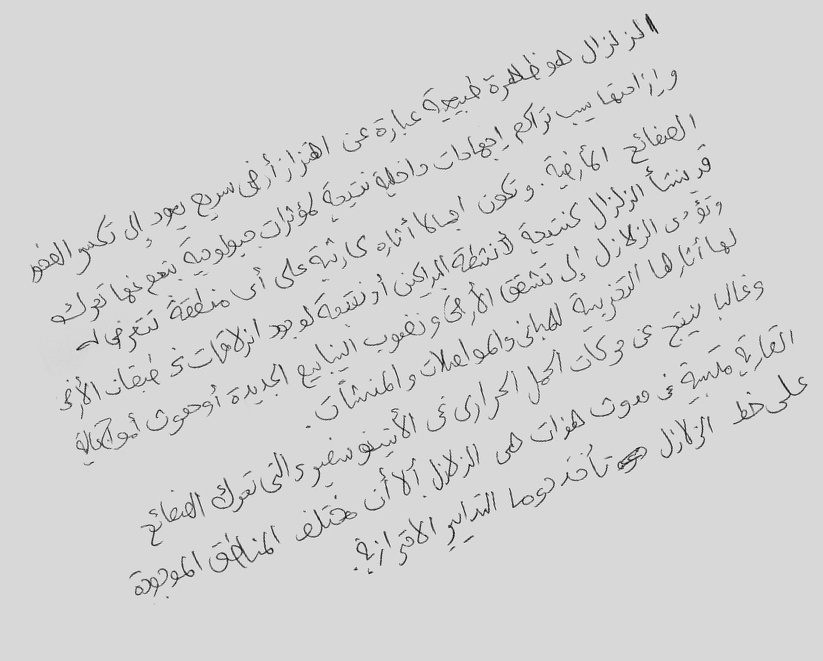 الزلزال هو ظاهرة طبيعية عبارة عن اهتزاز أرضي سريع يعود إلى تكسر الصخور
وإزاحتها بسبب تراكم إجهادات داخلية نتيجة لمؤثرات جيولوجية ينجم عنها تحرك
الصفائح الأرضية. وتكون اجمالا أثاره كارثية على أي منطقة تتعرض له
قد ينشأ الزلزال كنتيجة لأنشطة البراكين أو نتيجة لوجود انزلاقات في طبقات الأرض
وتؤدي الزلازل إلى تشقق الأرض ونضوب الينابيع الجديدة أو حدوث أمواج عالية
لها أثارها التخريبية للمباني والمواصلات والمنشآت.
وغالبا ينتج عن حركات الحمل الحراري في الأثينوسفير والتي تحرك الصفائح
القارية متسببة في حدوث هزات هي الزلازل. ألا أن مختلف المناطق الموجودة
على خط الزلازل تأخذ دوما التدابير الاحترازية.